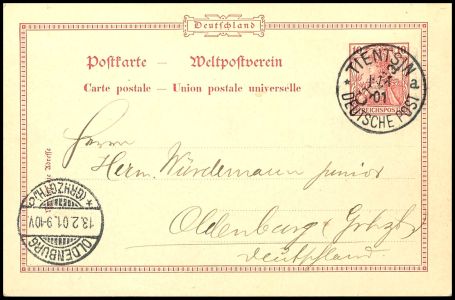 Deutschland
Postkarte – Weltpostverein
Carte postale – Union postale universelle
10 10
REICHSPOST
* TIENTSIN a
1/1
01
DEUTSCHE POST
Herrn
Herm. Würdemann junior
Oldenburg i/Grhzgt.
Deutschland
OLDENBURG
13.2.01.9-10V
* (GRHZGTH.)